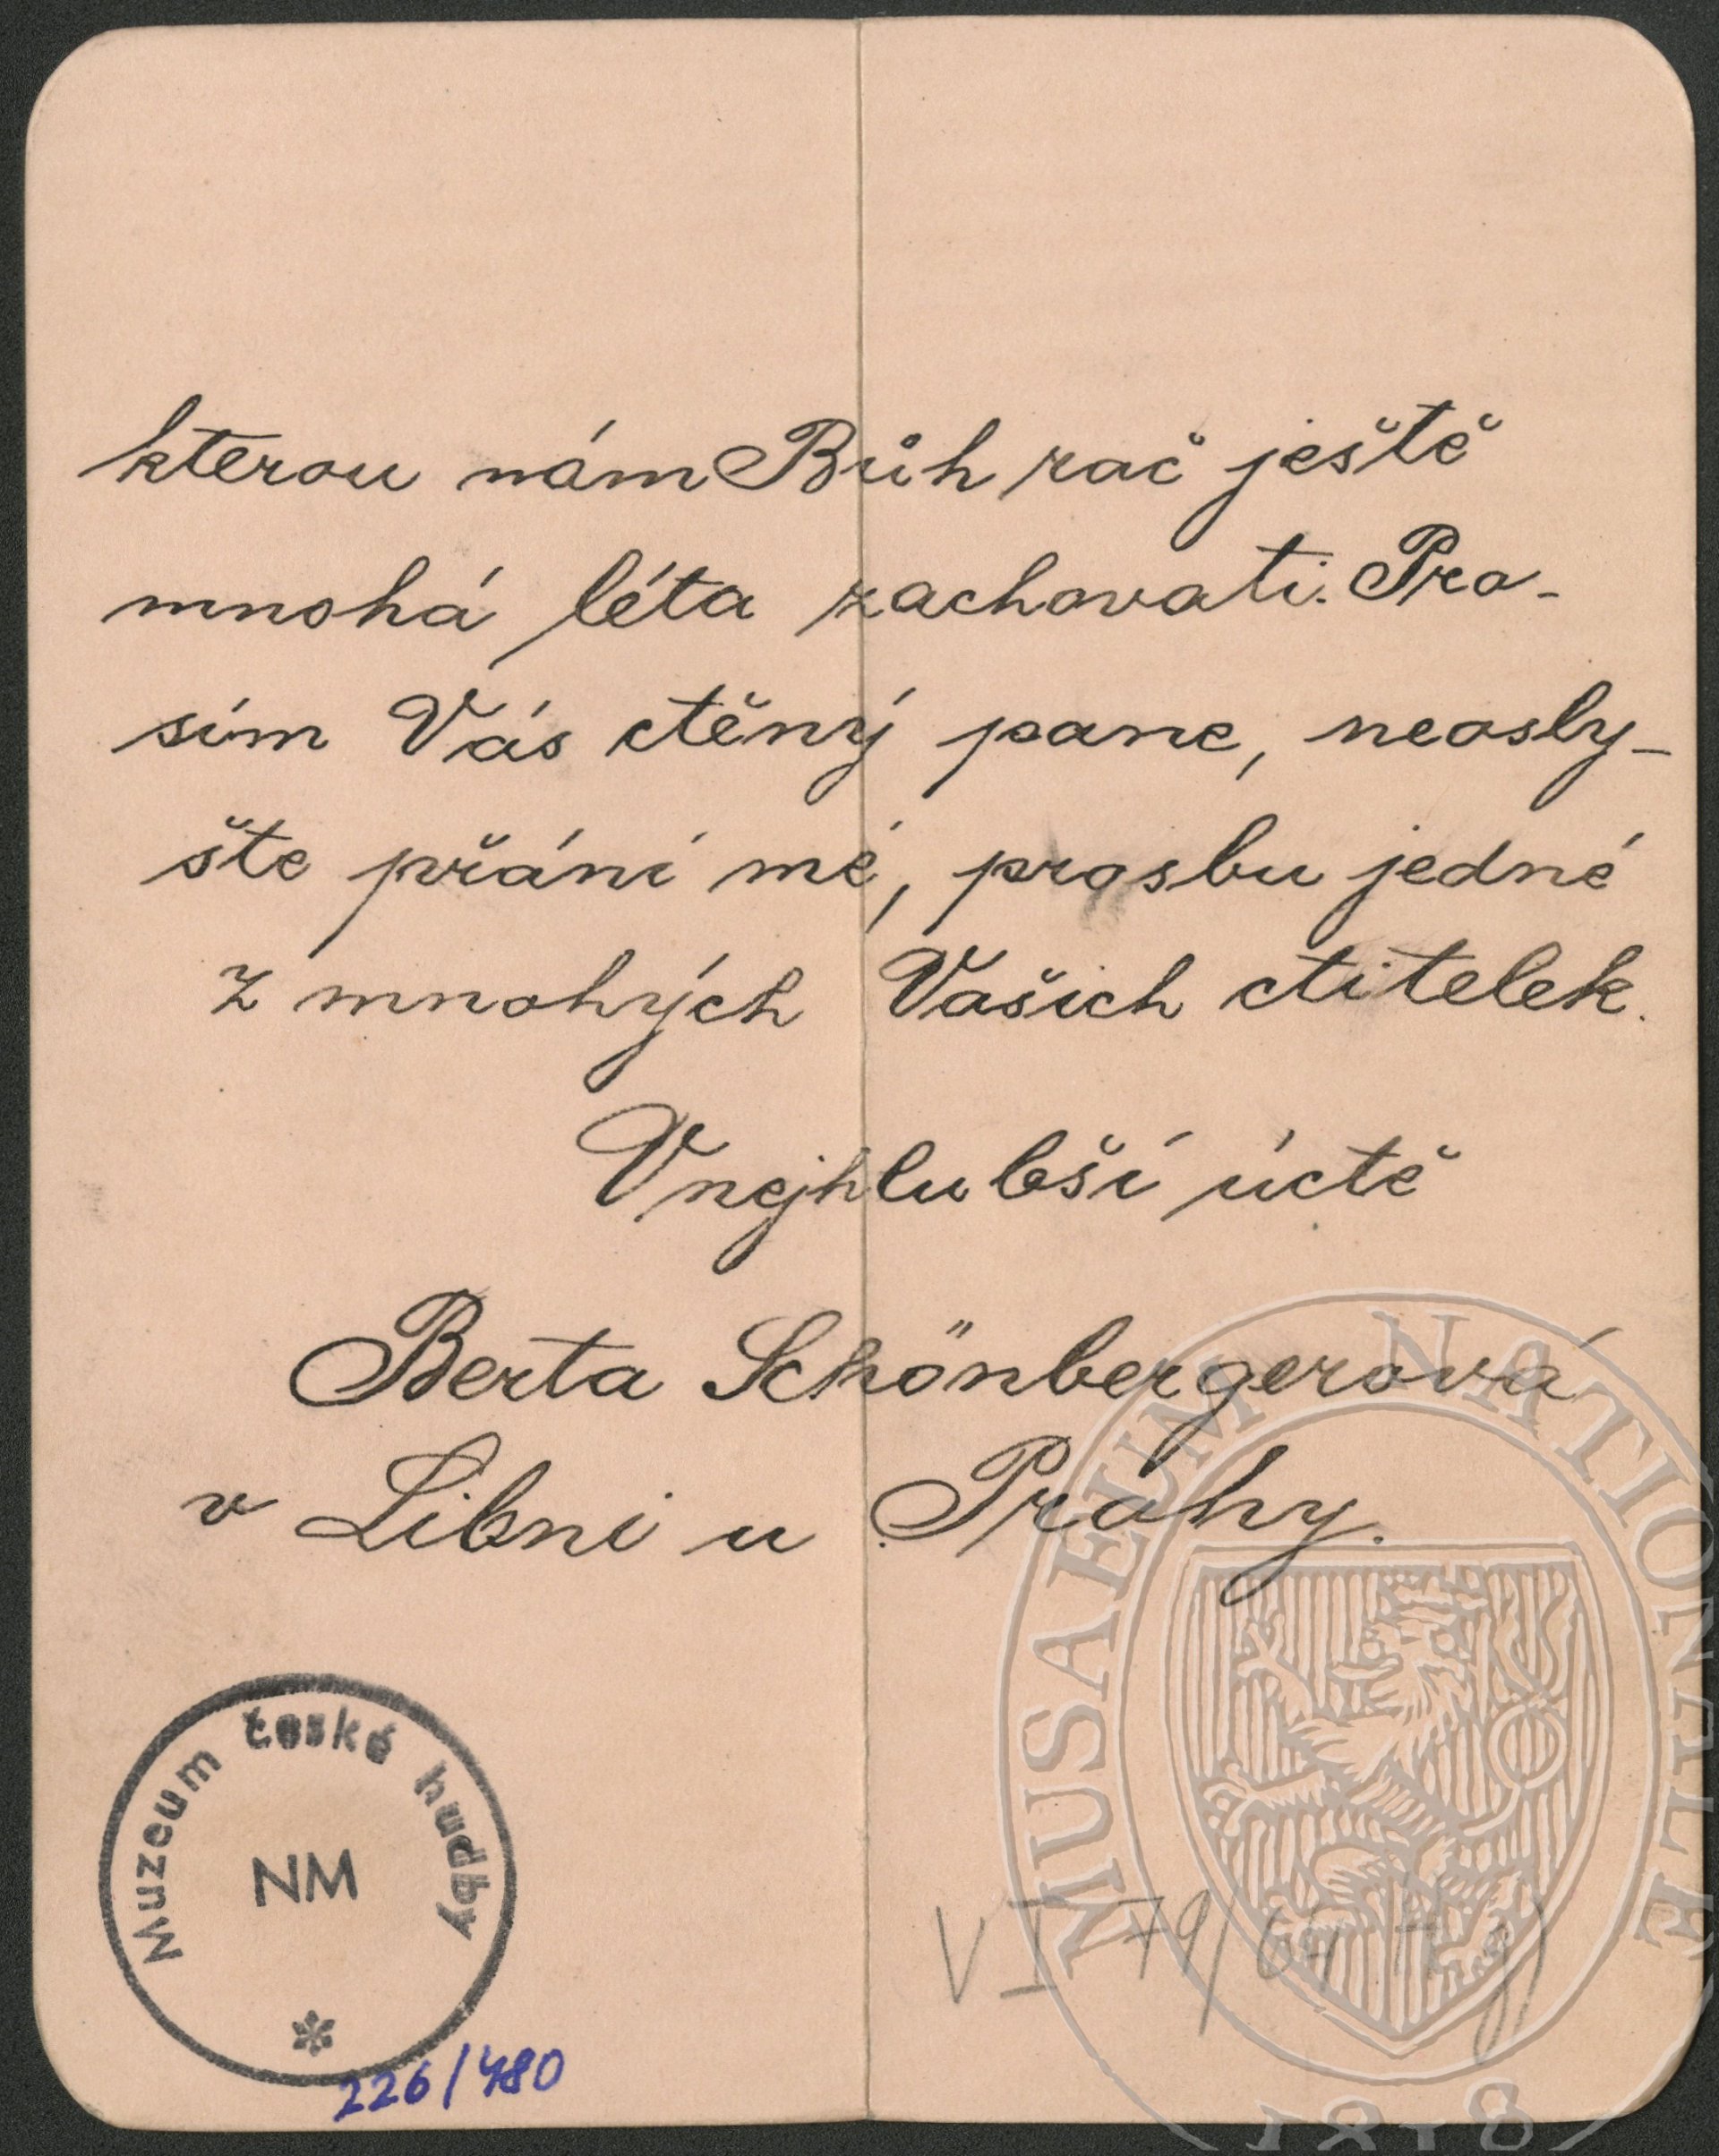 kterou nám Bůh rač ještě
mnohá léta zachovati. Pro-
sím Vás ctěný pane, neosly-
šte přání mé, prosbu jedné
z mnohých Vašich ctitelek.
V nejhlubší úctě
Berta Schönbergerová
v Libni u Prahy.
Muzeum české hudby
NM
226/480
VI 79/64
MUSAEUM NATIONALE
1818